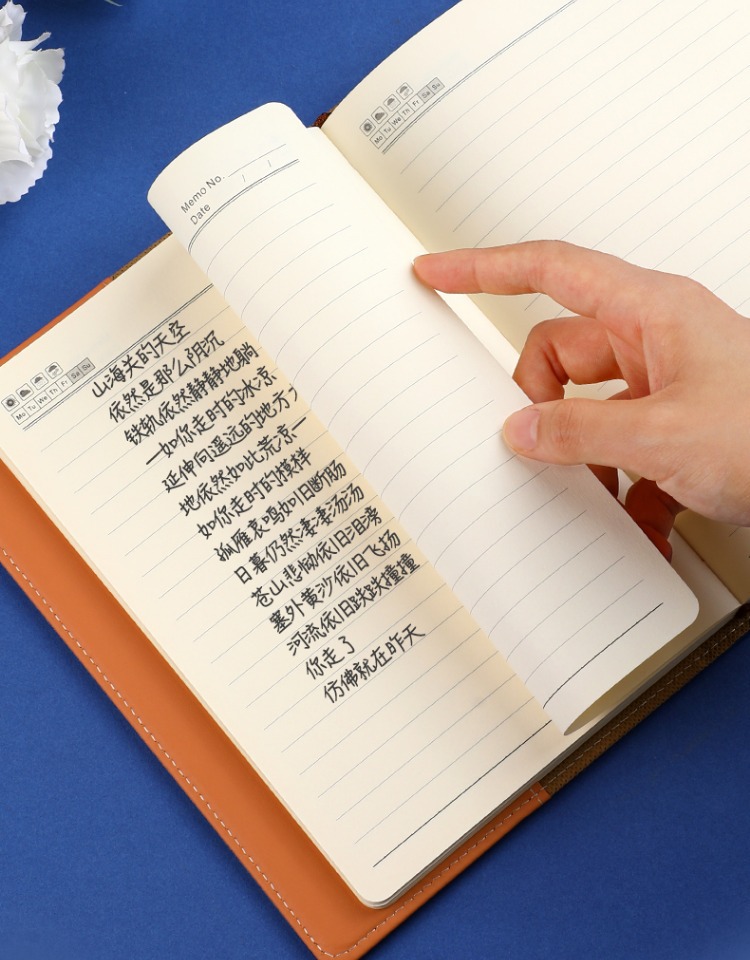 Memo No.
Date / /
Mo Tu We Th Fr Sa Su
Mo Tu We Th Fr Sa Su
山海关的天空
依然是那么阴沉
铁轨依然静静地躺
—如你走时的冰凉
延伸向遥远的地方
地依然如此荒凉—
如你走时的模样
孤雁哀鸣如旧断肠
日暮仍然凄凄汤汤
苍山悲恸依旧泪滂
塞外黄沙依旧飞扬
河流依旧跌跌撞撞
你走了
仿佛就在昨天